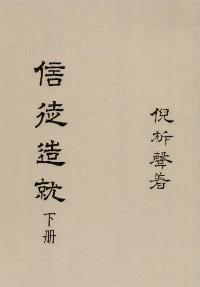 倪柝聲著
信徒造就
下册